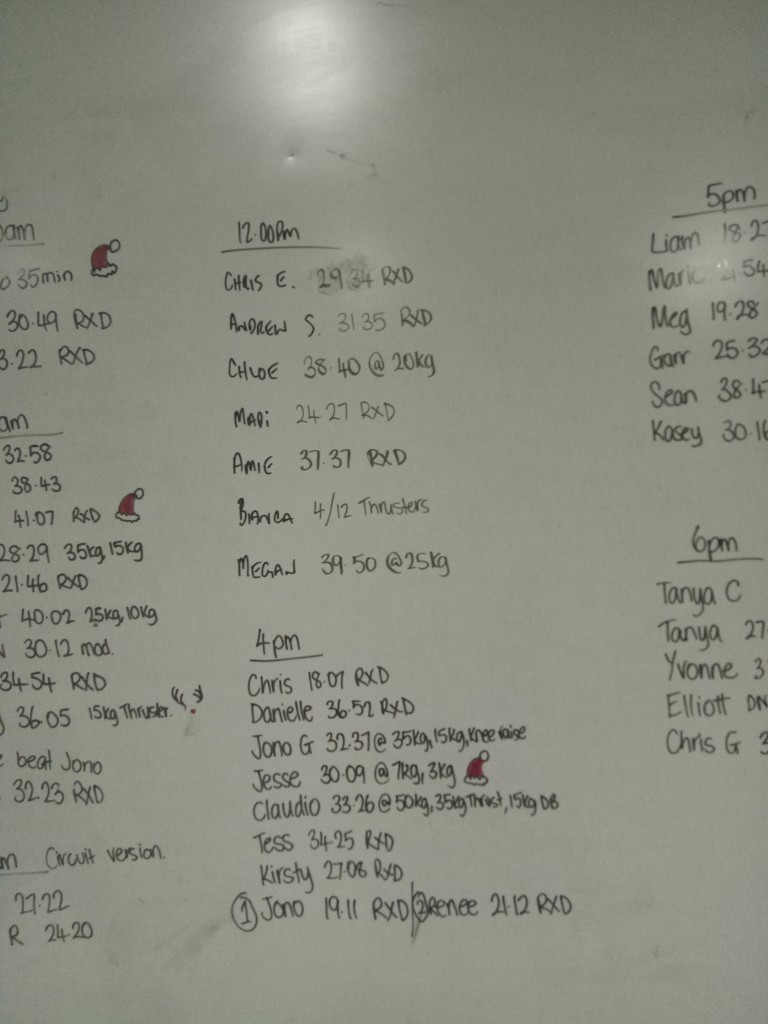 am
35min
30.49 RXD
3.22 RXD
am
32.58
38.43
41.07 RXD
28.29 35kg, 15kg
21.46 RXD
40.02 25kg, 10kg
30.12 mod.
34.54 RXD
36.05 15kg Thruster.
beat Jono
32.23 RXD
m Circuit version.
27.22
R 24.20
12.00pm
CHRIS E. 29.34 RXD
ANDREW S. 31.35 RXD
CHLOE 38.40 @ 20kg
MADi 24.27 RXD
AMIE 37.37 RXD
BIANCA 4/12 Thrusters
MEGAN 39.50 @ 25kg
4pm
Chris 18.07 RXD
Danielle 36.52 RXD
Jono G 32.37 @ 35kg, 15kg, knee raise
Jesse 30.09 @ 7kg, 3kg
Claudio 33.26 @ 50kg, 35kg Thrust, 15kg DB
Tess 34.25 RXD
Kirsty 27.08 RXD
1 Jono 19.11 RXD / 2 Renee 21.12 RXD
5pm
Liam 18.27
Maric 54
Meg 19.28
Garr 25.32
Sean 38.47
Kasey 30.16
6pm
Tanya C
Tanya 27.
Yvonne 3
Elliott DN
Chris G 3